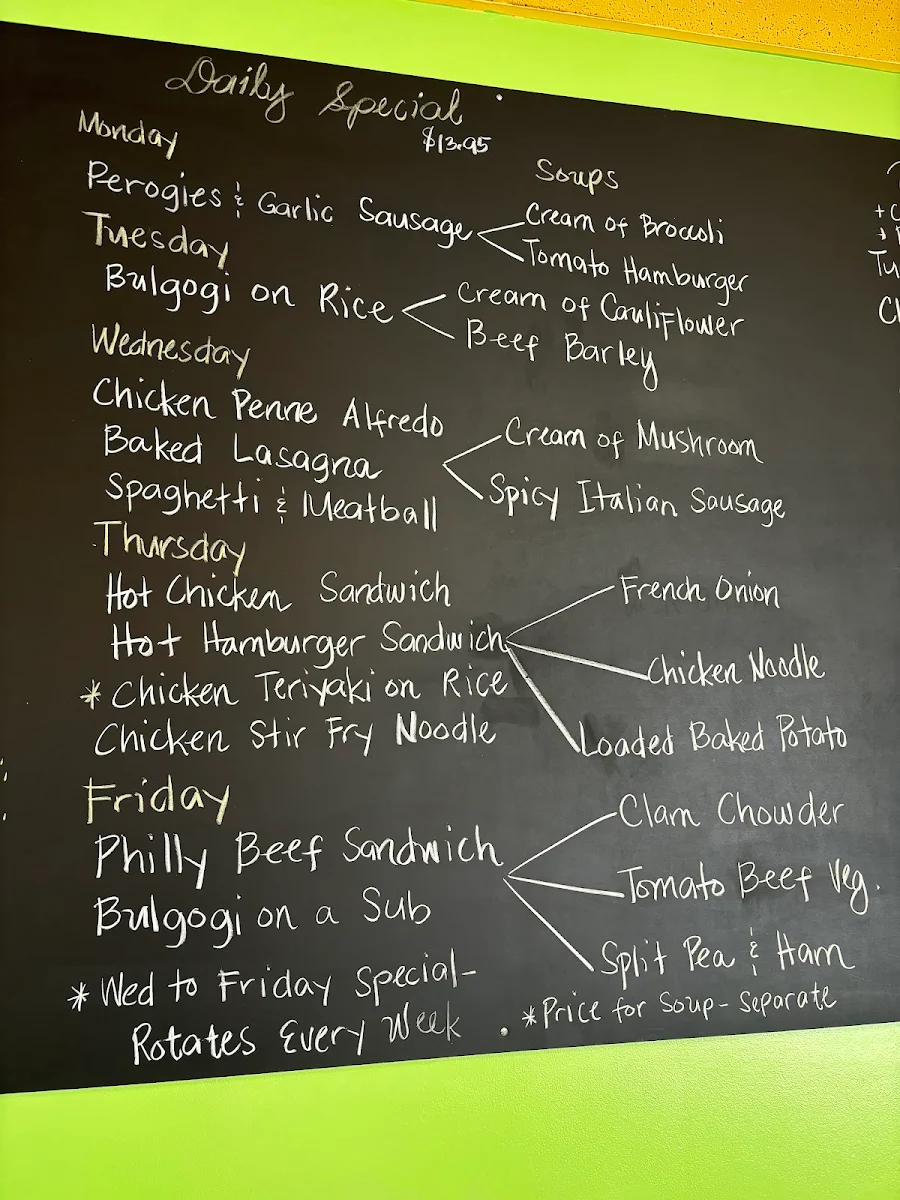 Daily Special
$13.95
Monday
Soups
Perogies & Garlic Sausage
Cream of Broccoli
Tomato Hamburger
Tuesday
Bulgogi on Rice
Cream of Cauliflower
Beef Barley
Wednesday
Chicken Penne Alfredo
Baked Lasagna
Spaghetti & Meatball
Cream of Mushroom
Spicy Italian Sausage
Thursday
Hot Chicken Sandwich
Hot Hamburger Sandwich
* Chicken Teriyaki on Rice
Chicken Stir Fry Noodle
French Onion
Chicken Noodle
Loaded Baked Potato
Friday
Philly Beef Sandwich
Bulgogi on a Sub
Clam Chowder
Tomato Beef Veg.
Split Pea & Ham
* Wed to Friday Special-
Rotates Every Week
* Price for Soup - Separate